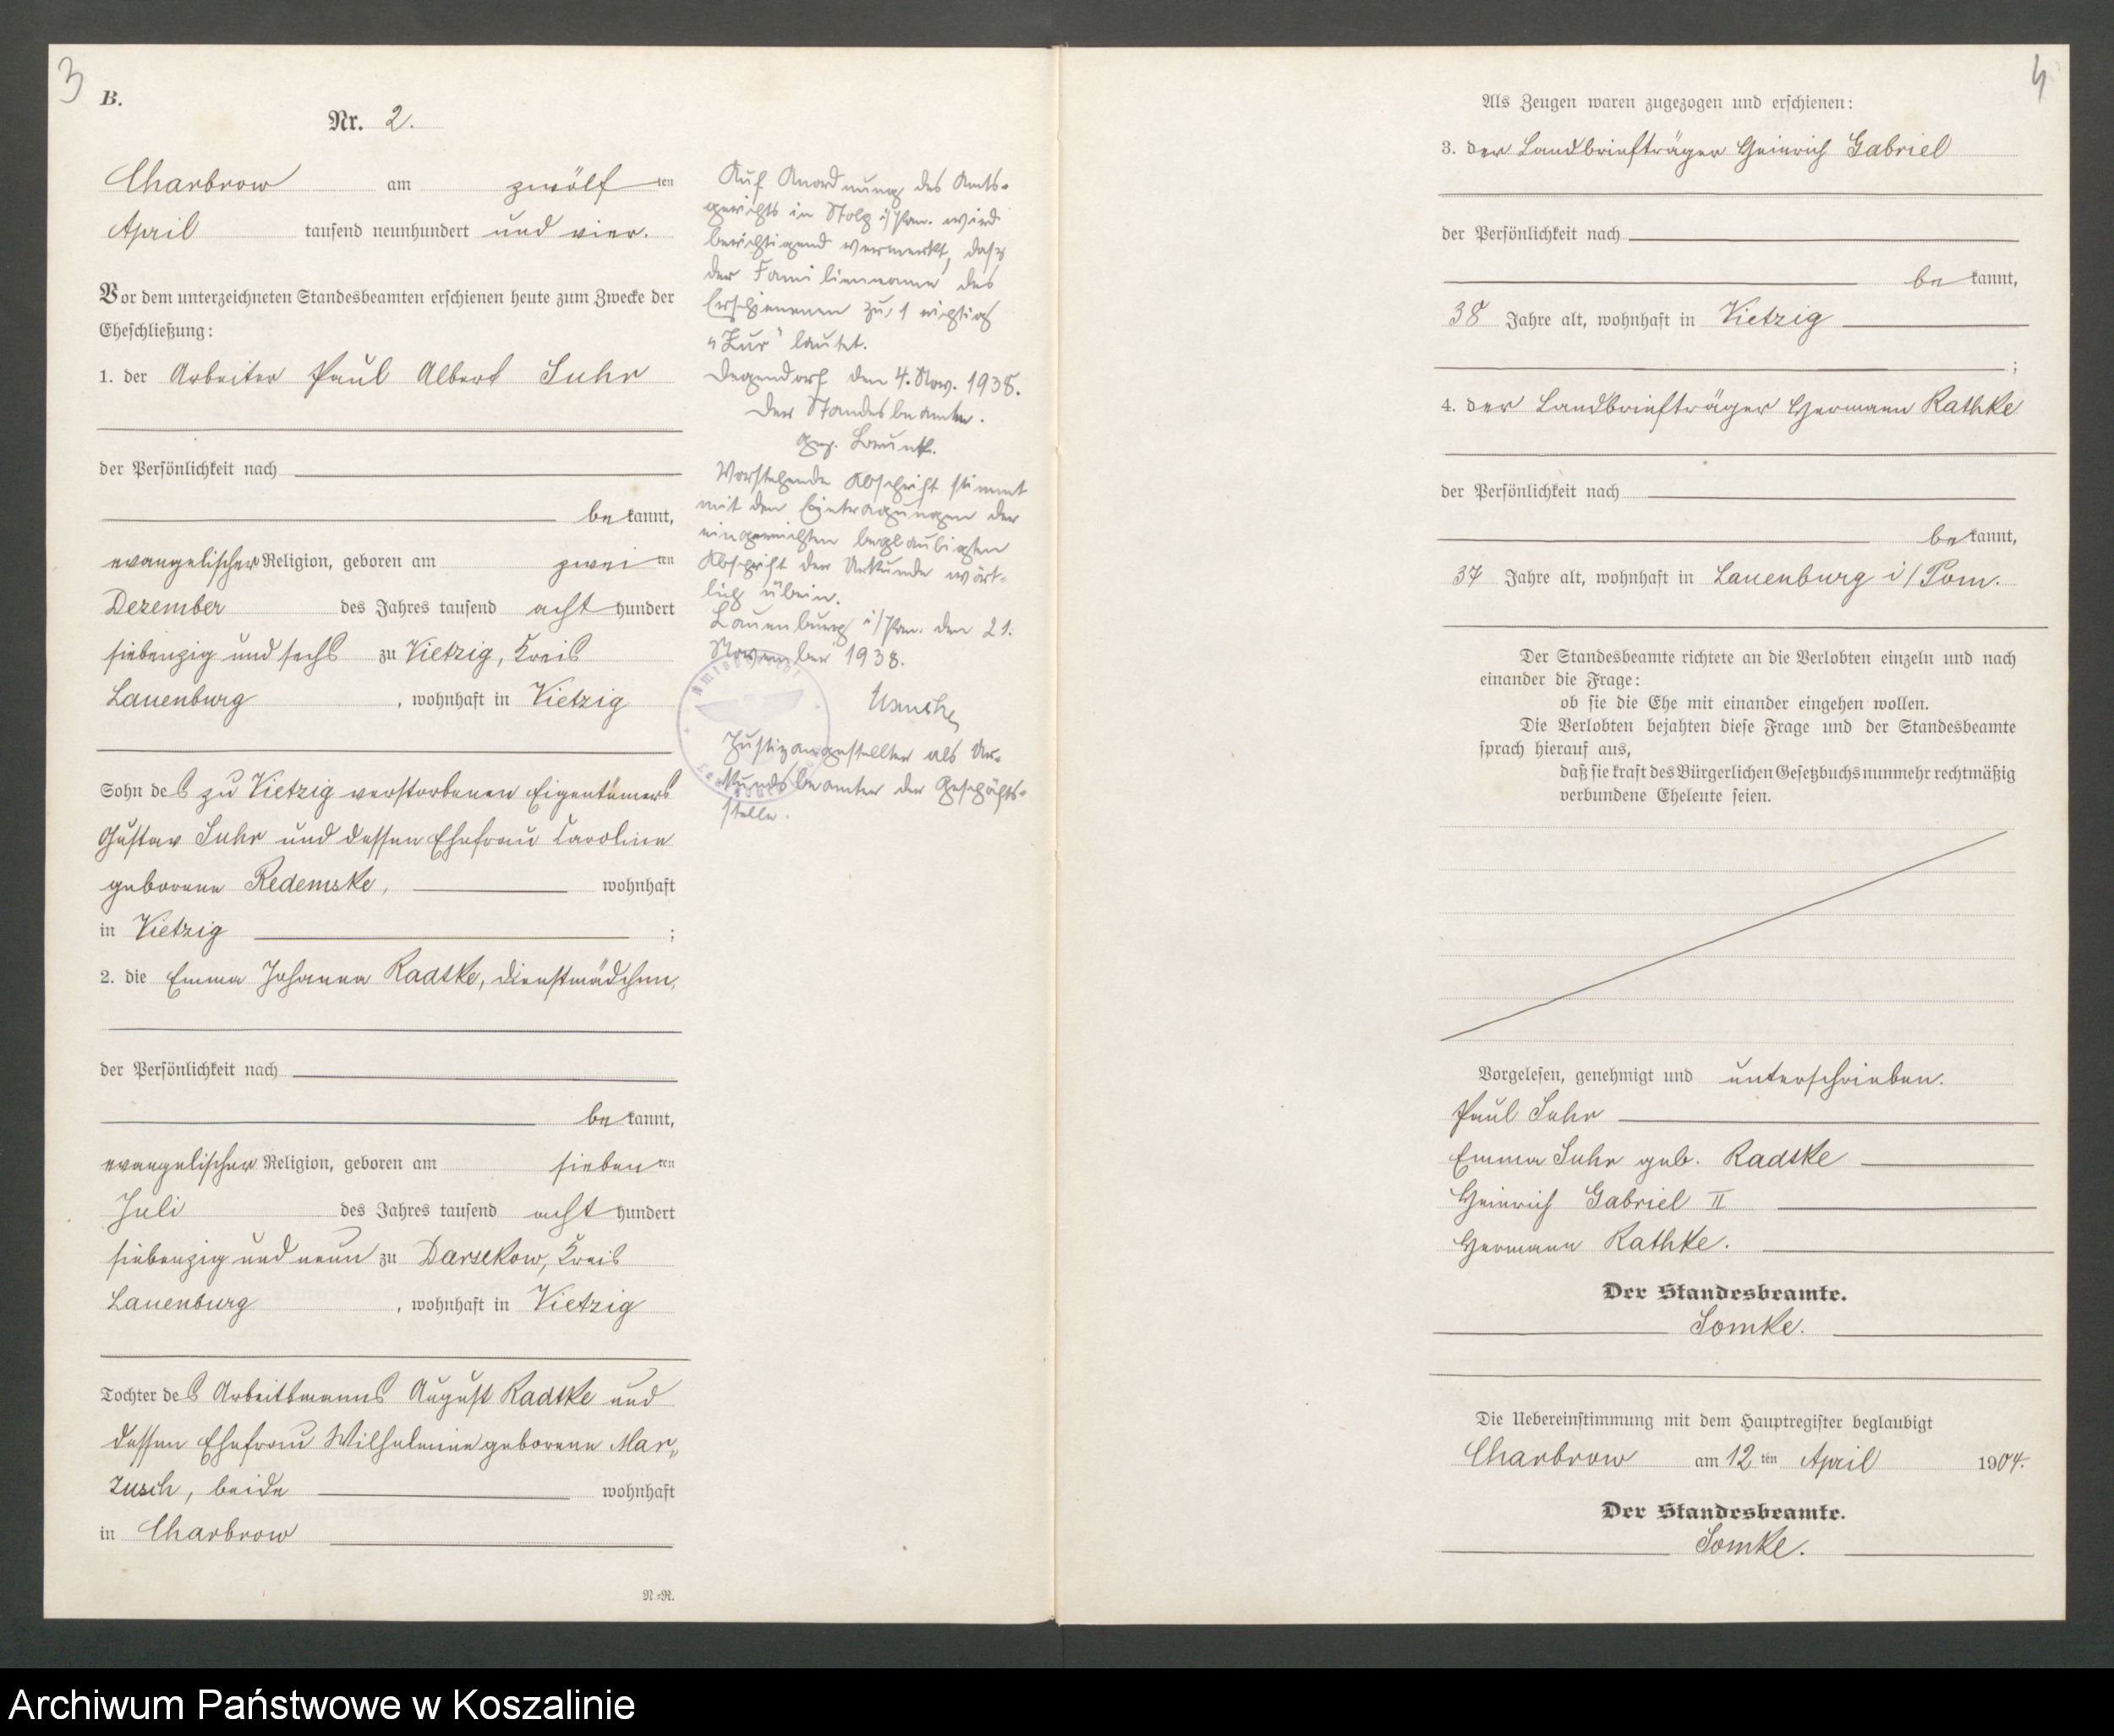 3
B.
Nr. 2.
Charbrow am zwölften
April tausend neunhundert und vier.
Vor dem unterzeichneten Standesbeamten erschienen heute zum Zwecke der
Eheschließung:
1. der Arbeiter Paul Albert Suhr
der Persönlichkeit nach
bekannt,
evangelischer Religion, geboren am zweiten
Dezember des Jahres tausend achthundert
siebenzig und sechs zu Vietzig, Kreis
Lauenburg, wohnhaft in Vietzig
Sohn des zu Vietzig verstorbenen Eigentümers
Gustav Suhr und dessen Ehefrau Caroline
geborene Redemske, wohnhaft
in Vietzig ;
2. die Emma Johanna Radtke, Dienstmädchen,
der Persönlichkeit nach
bekannt,
evangelischer Religion, geboren am siebenten
Juli des Jahres tausend achthundert
siebenzig und neun zu Darsekow, Kreis
Lauenburg, wohnhaft in Vietzig
Tochter des Arbeitsmanns August Radtke und
dessen Ehefrau Wilhelmine geborene Mar„
zusch, beide wohnhaft
in Charbrow
N.=R.
Auf Anordnung des Amts-
gerichts in Stolp i/Pom. wird
berichtigend vermerkt, dass
der Familienname des
Erschienenen zu 1 richtig
"Zur" lautet.
Degendorf den 4. Nov. 1938.
Der Standesbeamte.
gez.
Vorstehende Abschrift stimmt
mit den Eintragungen der
eingereichten beglaubigten
Abschrift der Urkunde wört-
lich überein.
Lauenburg i/Pom. den 21.
November 1938.
Justizangestellter als Ur-
kundsbeamter der Geschäfts-
stelle.
4
Als Zeugen waren zugezogen und erschienen:
3. der Landbriefträger Heinrich Gabriel
der Persönlichkeit nach
bekannt,
38 Jahre alt, wohnhaft in Vietzig
;
4. der Landbriefträger Hermann Rathke
der Persönlichkeit nach
bekannt,
37 Jahre alt, wohnhaft in Lauenburg i/Pom.
Der Standesbeamte richtete an die Verlobten einzeln und nach
einander die Frage:
ob sie die Ehe mit einander eingehen wollen.
Die Verlobten bejahten diese Frage und der Standesbeamte
sprach hierauf aus,
daß sie kraft des Bürgerlichen Gesetzbuchs nunmehr rechtmäßig
verbundene Eheleute seien.
Vorgelesen, genehmigt und unterschrieben.
Paul Suhr
Emma Suhr geb. Radtke
Heinrich Gabriel II
Hermann Rathke.
Der Standesbeamte.
Somke.
Die Uebereinstimmung mit dem Hauptregister beglaubigt
Charbrow am 12ten April 1904.
Der Standesbeamte.
Somke.
Archiwum Państwowe w Koszalinie